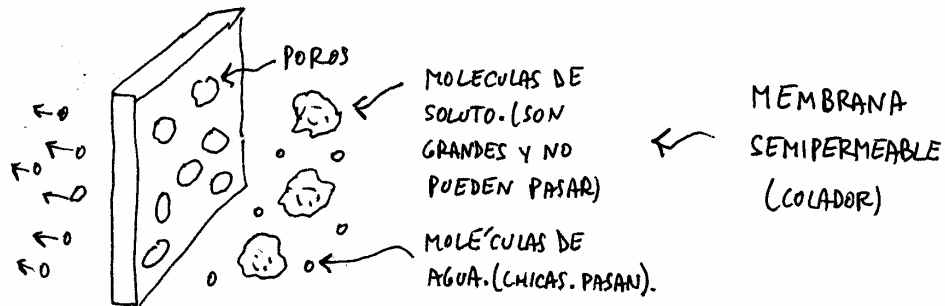 POROS
MOLECULAS DE
SOLUTO. (SON
GRANDES Y NO
PUEDEN PASAR)
MOLÉCULAS DE
AGUA. (CHICAS. PASAN).
MEMBRANA
SEMIPERMEABLE
(COLADOR)